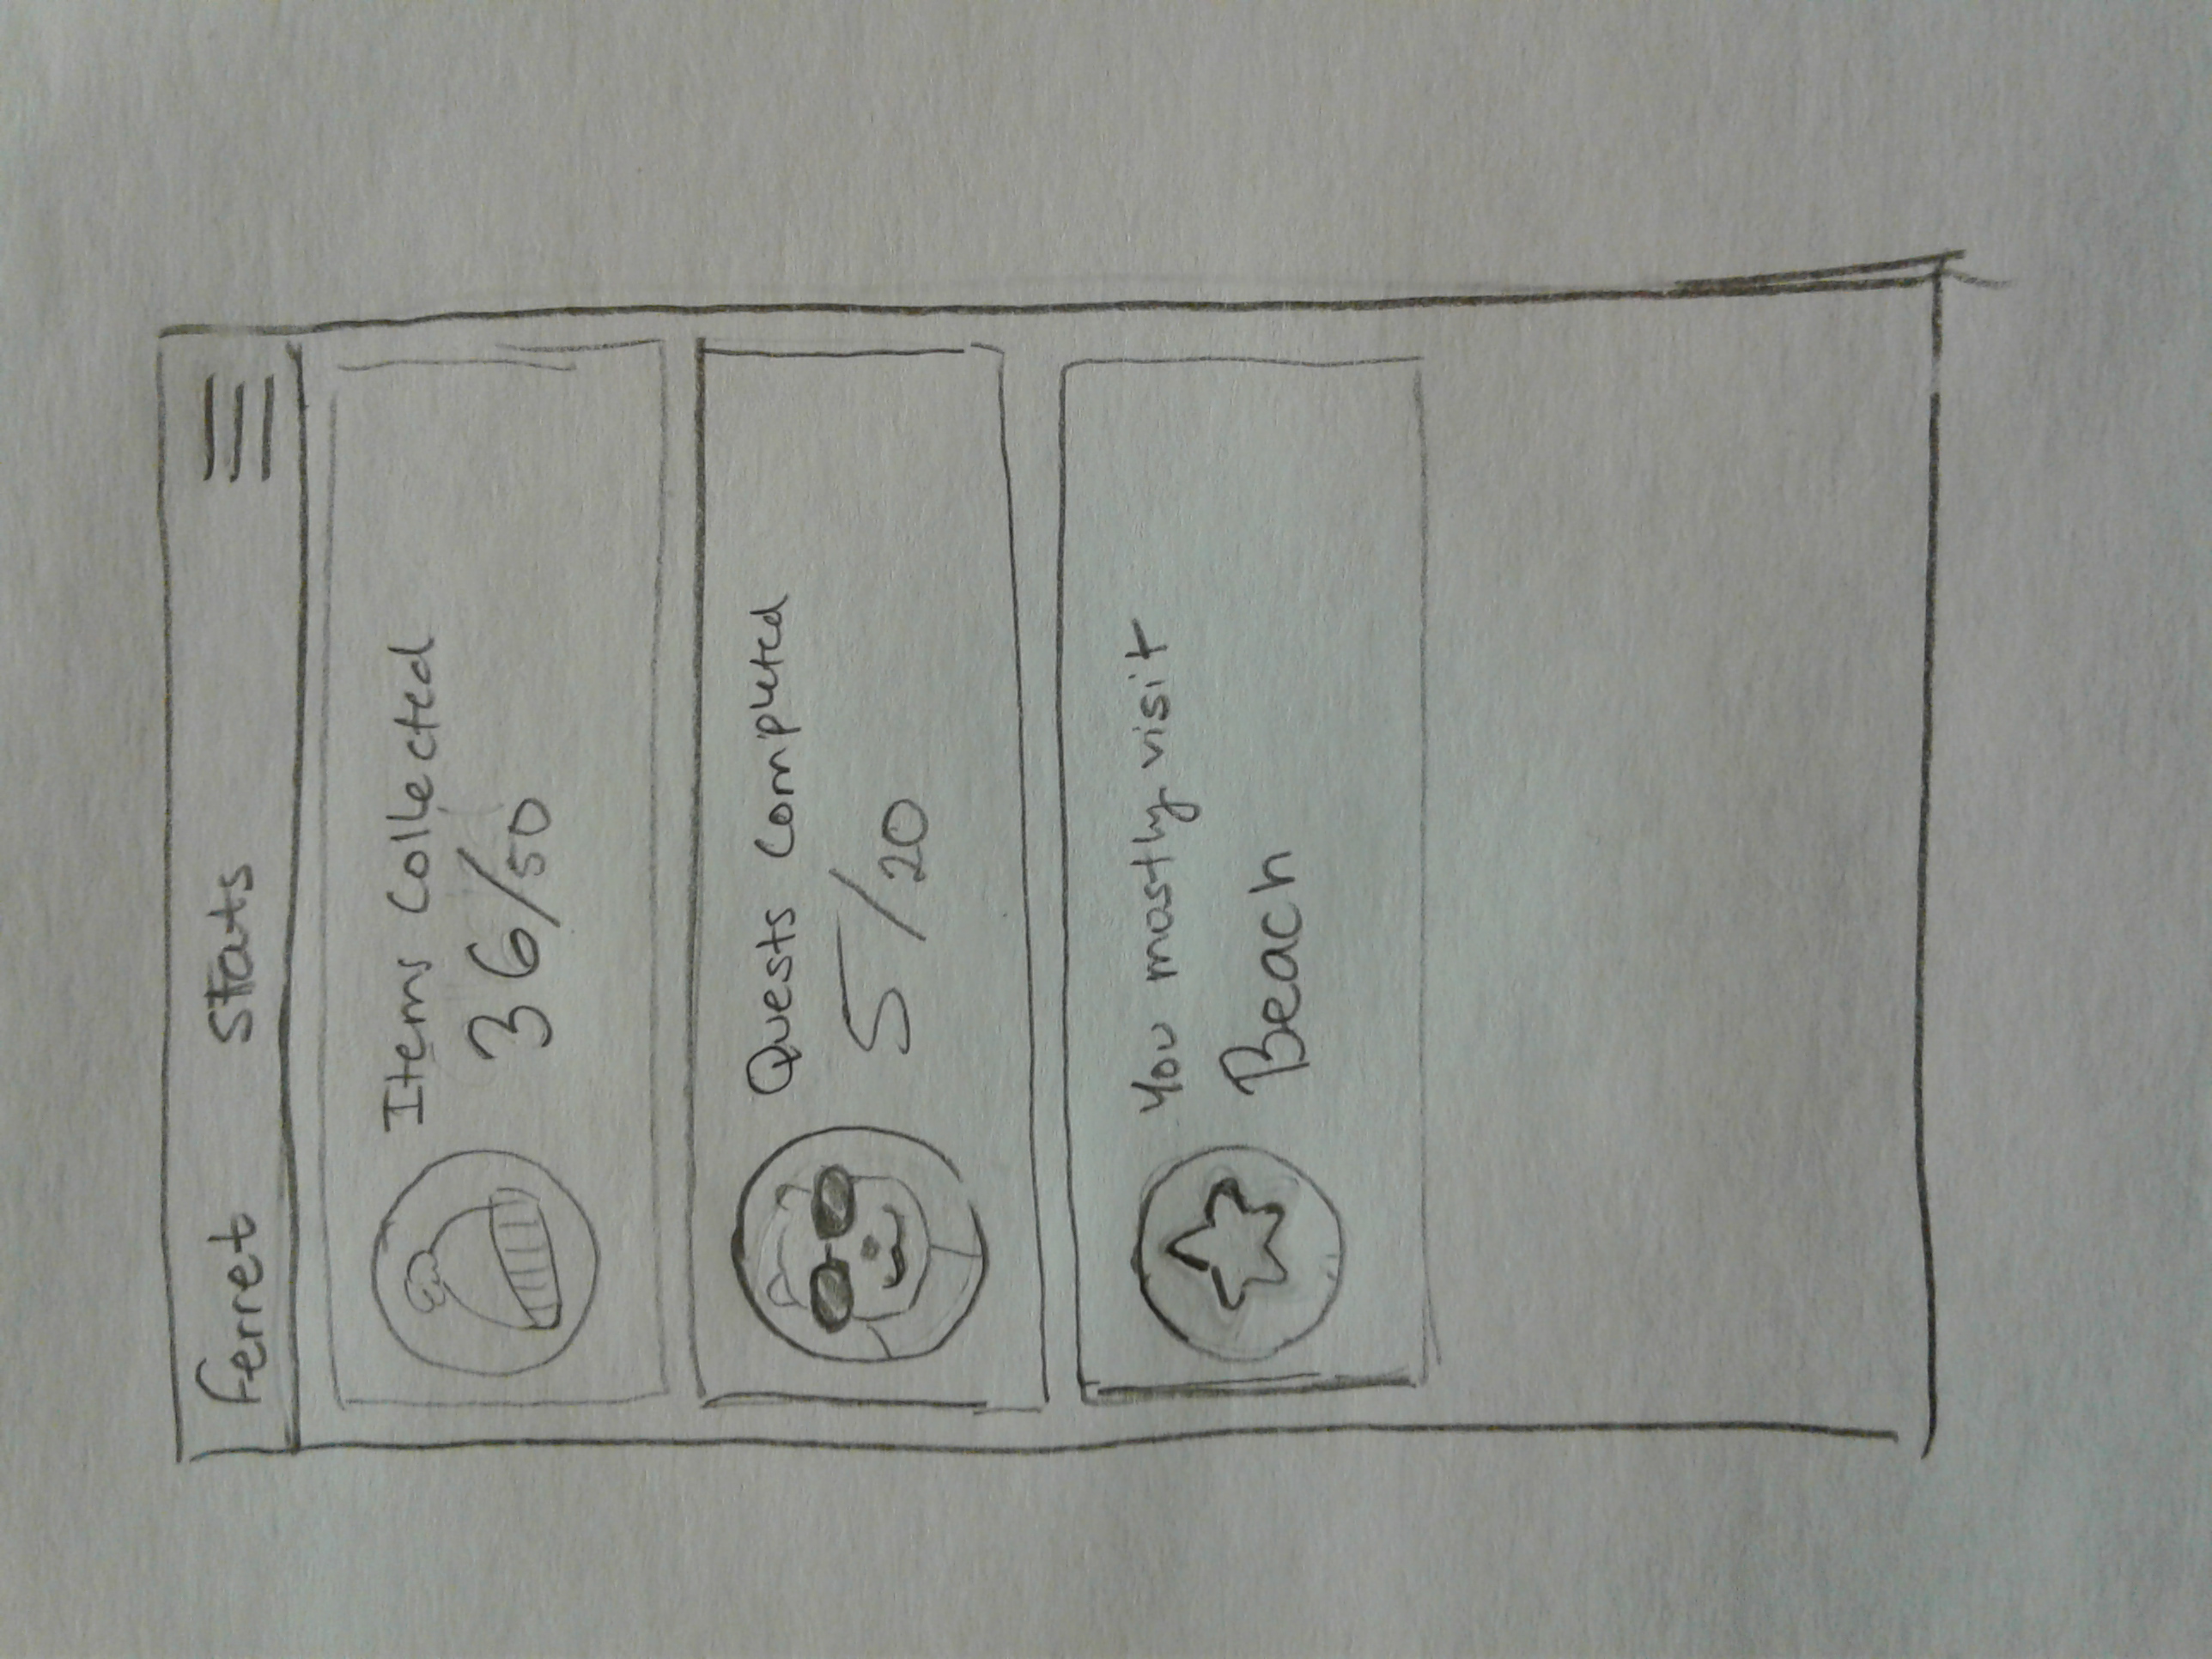 Ferret Stats
Items Collected
36/50
Quests Completed
5/20
You mostly visit
Beach